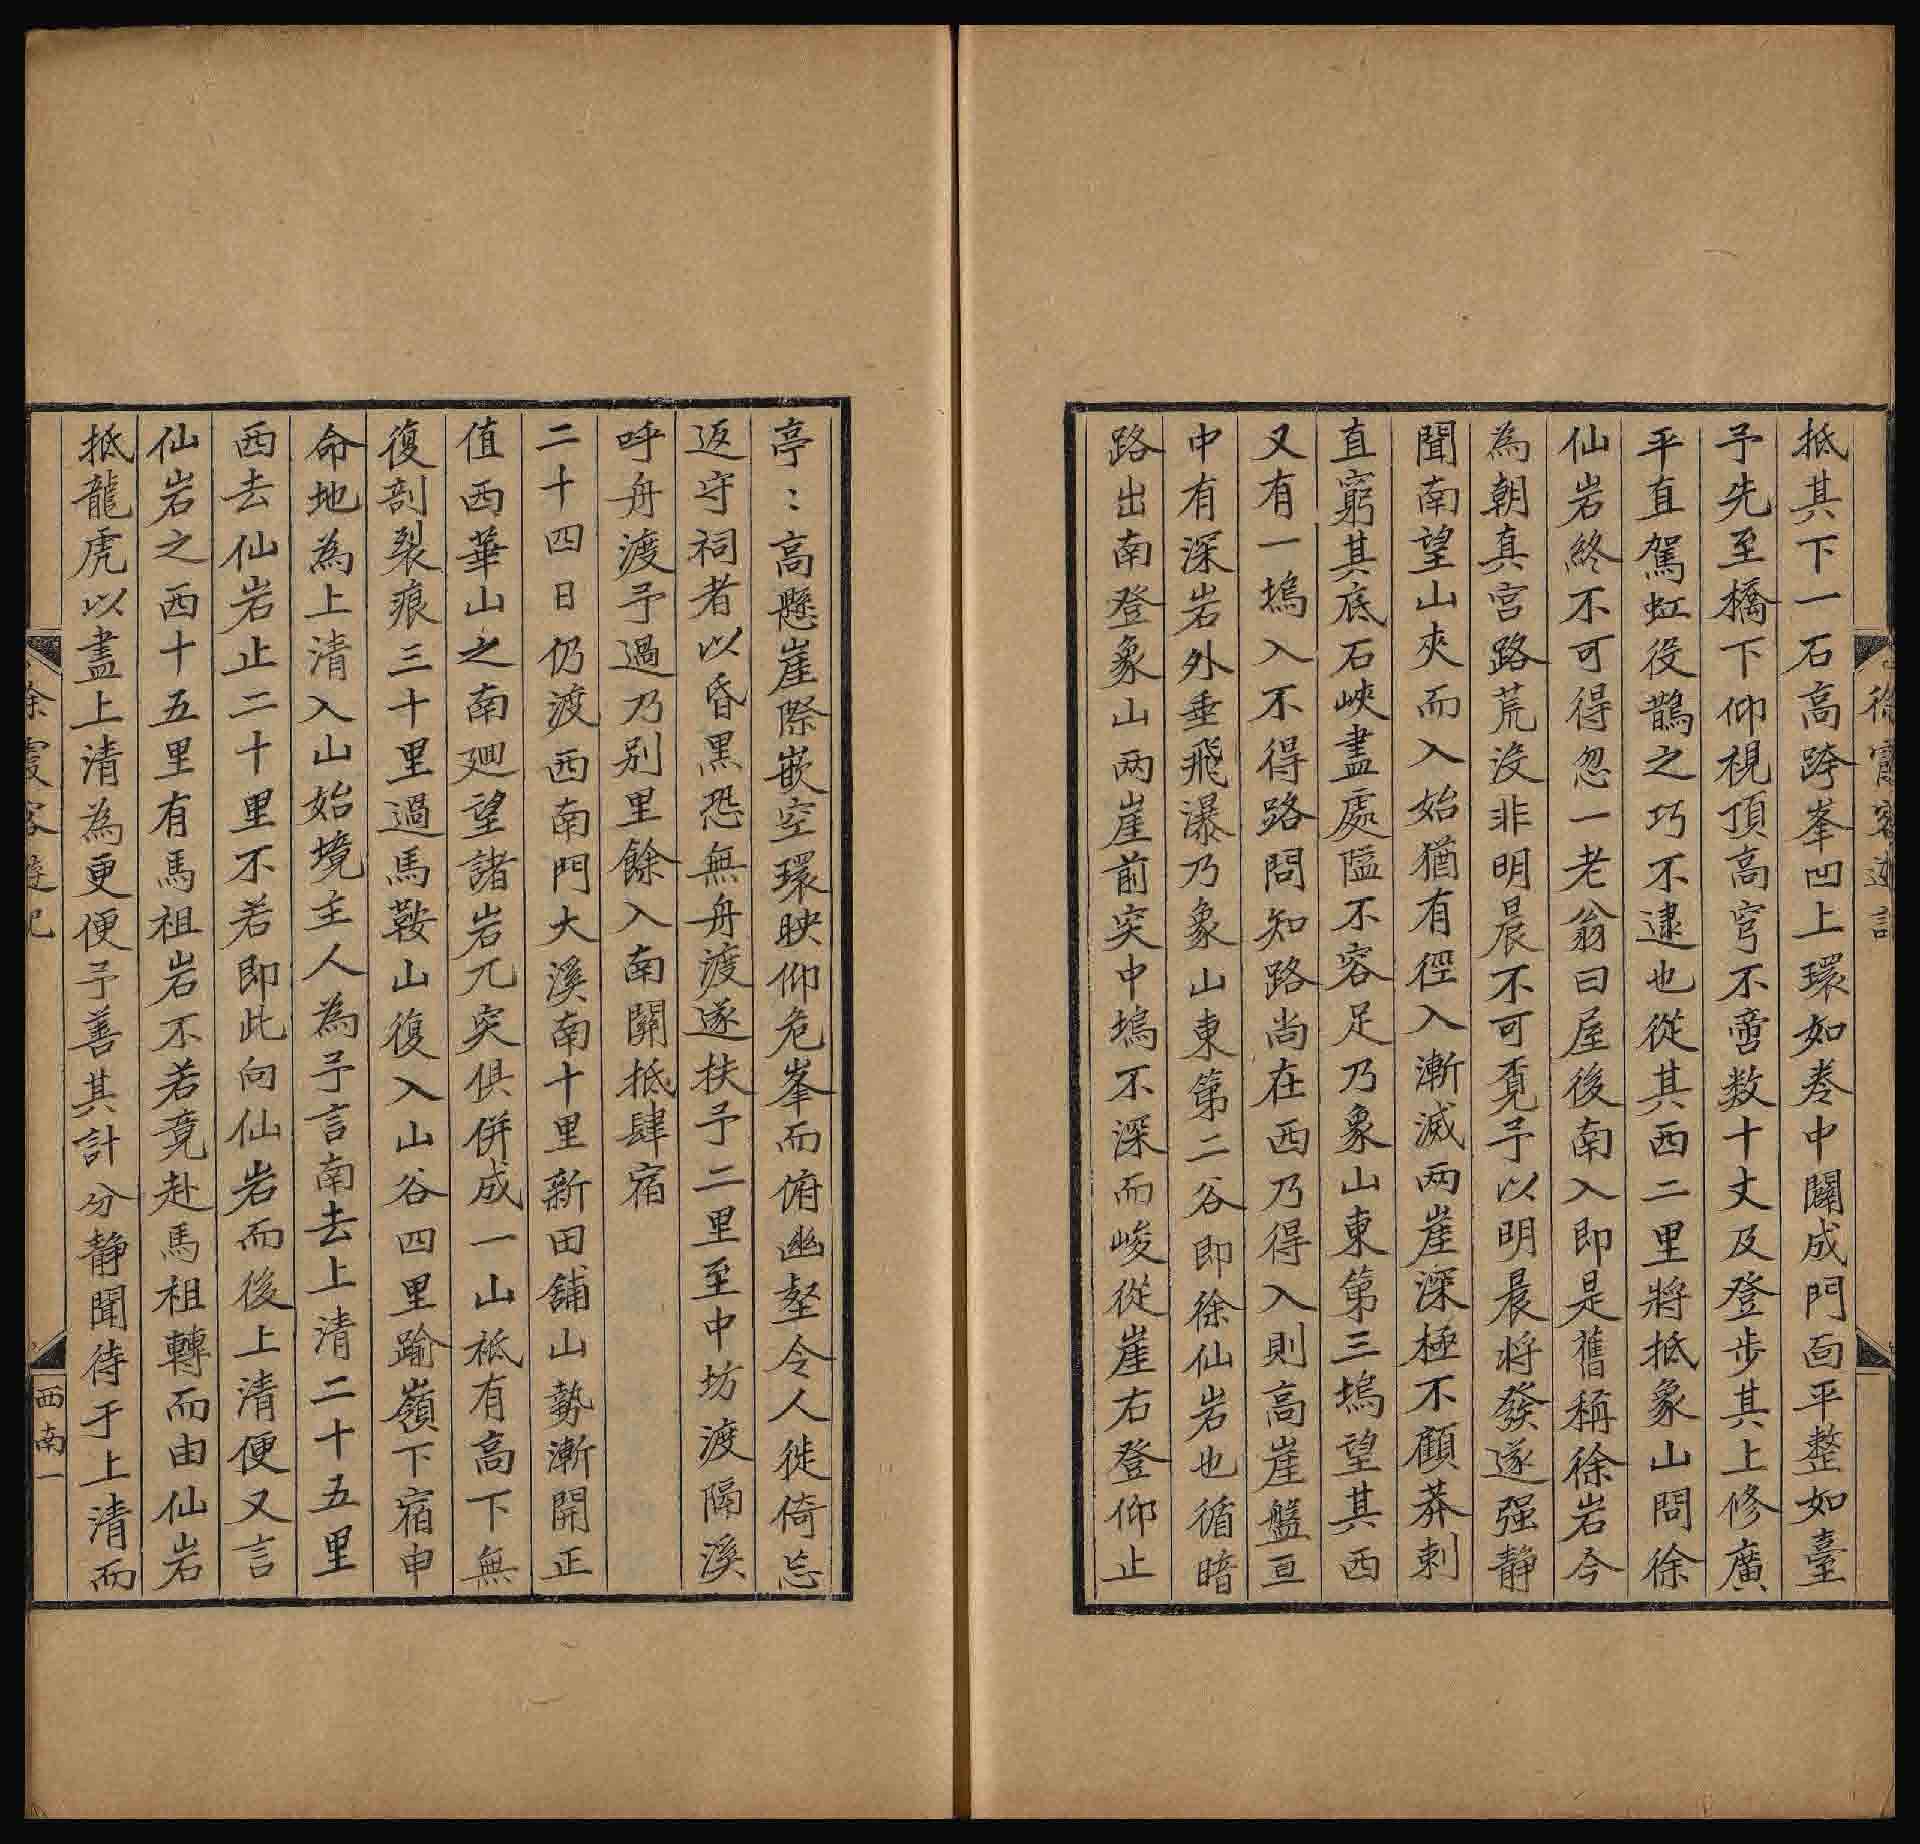 抵其下一石高跨峯凹上環如卷中闢成門面平整如臺
予先至橋下仰視頂高穹不啻数十丈及登步其上修廣
平直駕虹役鵲之巧不逮也從其西二里將抵象山問徐
仙岩終不可得忽一老翁曰屋後南入即是舊稱徐岩今
為朝真宮路荒沒非明晨不可覓予以明晨將發遂强静
聞南望山夾而入始猶有徑入漸滅两崖深極不顧莽刺
直窮其底石峽盡處隘不容足乃象山東第三塢望其西
又有一塢入不得路問知路尚在西乃得入則高崖盤亘
中有深岩外垂飛瀑乃象山東第二谷即徐仙岩也循暗
路出南登象山两崖前突中塢不深而峻從崖右登仰止
亭：高懸崖際嵌空環映仰危峯而俯幽壑令人徙倚忘
返守祠者以昏黑恐無舟渡遂扶予二里至中坊渡隔溪
呼舟渡予過乃别里餘入南關抵肆宿
二十四日仍渡西南門大溪南十里新田舖山勢漸開正
值西華山之南廻望諸岩兀突俱併成一山衹有高下無
復剖裂痕三十里過馬鞍山復入山谷四里踰嶺下宿申
命地為上清入山始境主人為予言南去上清二十五里
西去仙岩止二十里不若即此向仙岩而後上清便又言
仙岩之西十五里有馬祖岩不若竟赴馬祖轉而由仙岩
抵龍虎以盡上清為更便予善其計分静聞待于上清而
徐霞客遊記
西南一